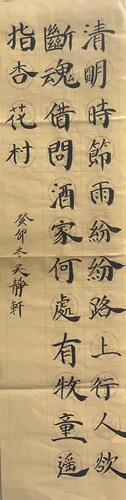 清明時節雨紛紛路上行人欲
斷魂借問酒家何處有牧童遥
指杏花村
癸卯冬天静軒